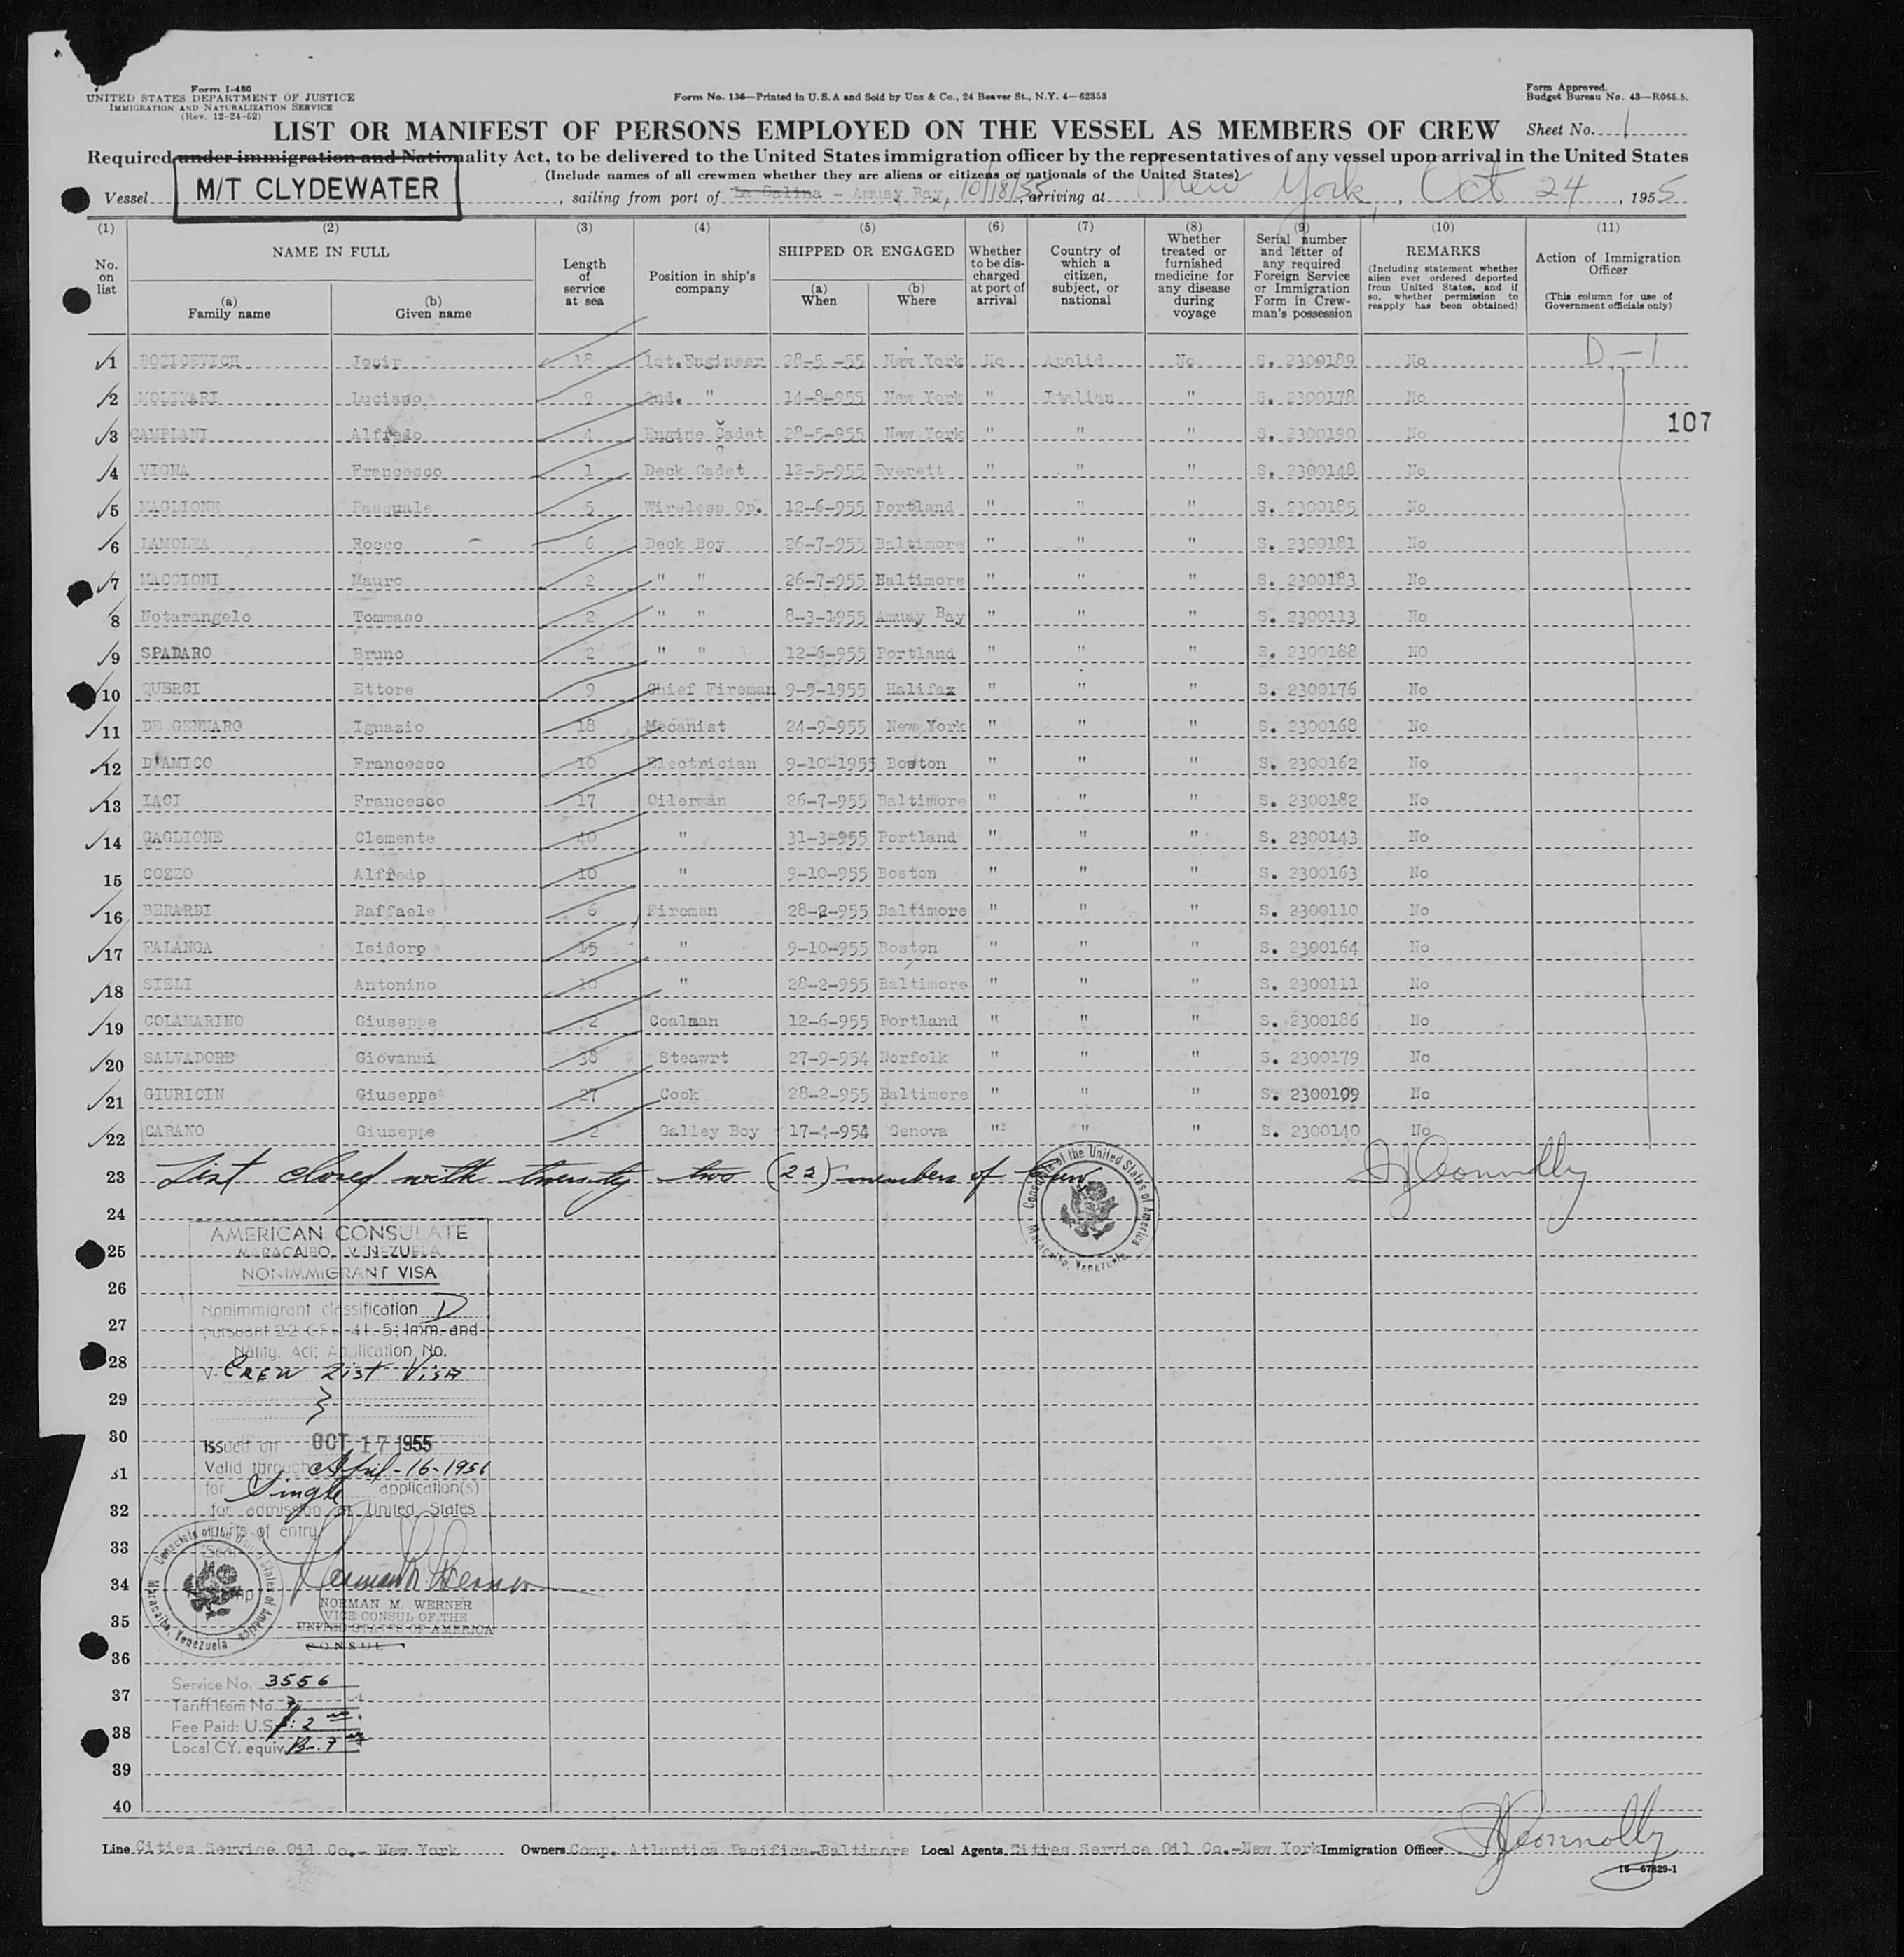 Form I-480
UNITED STATES DEPARTMENT OF JUSTICE
IMMIGRATION AND NATURALIZATION SERVICE
(Rev. 12-24-52)
Form No. 136—Printed in U.S.A and Sold by Unz & Co., 24 Beaver St., N.Y. 4—62353
Form Approved.
Budget Bureau No. 43—R065.5.
LIST OR MANIFEST OF PERSONS EMPLOYED ON THE VESSEL AS MEMBERS OF CREW
Sheet No. 1
Required under immigration and Nationality Act, to be delivered to the United States immigration officer by the representatives of any vessel upon arrival in the United States
(Include names of all crewmen whether they are aliens or citizens or nationals of the United States)
Vessel M/T CLYDEWATER, sailing from port of La Salina - Amuay Bay, 10/18/55, arriving at New York, Oct 24, 1955
(1) (2) (3) (4) (5) (6) (7) (8) (9) (10) (11)
No. on list
NAME IN FULL
(a) Family name
(b) Given name
Length of service at sea
Position in ship's company
SHIPPED OR ENGAGED
(a) When
(b) Where
Whether to be discharged at port of arrival
Country of which a citizen, subject, or national
Whether treated or furnished medicine for any disease during voyage
Serial number and letter of any required Foreign Service or Immigration Form in Crewman's possession
REMARKS
(Including statement whether alien ever ordered deported from United States, and if so, whether permission to reapply has been obtained)
Action of Immigration Officer
(This column for use of Government officials only)
1 BOZICEVICH Josip 18 1st.Engineer 28-5 -55 New York No Apolid No S. 2300189 No D-1
2 MOLINARI Luciano 9 2nd. " 14-8-955 New York " Italian " S. 2300178 No
107
3 CAMPIANI Alfredo 4 Engine Cadet 28-5-955 New York " " " S. 2300190 No
4 VIGNA Francesco 1 Deck Cadet 12-5-955 Everett " " " S. 2300148 No
5 MAGLIONE Pasquale 5 Wireless Op. 12-6-955 Portland " " " S. 2300185 No
6 LAMOLEA Rocco 6 Deck Boy 26-7-955 Baltimore " " " S. 2300181 No
7 MACCIONI Mauro 2 " " 26-7-955 Baltimore " " " S. 2300183 No
8 Notarangelo Tommaso 2 " " 8-3-1955 Amuay Bay " " " S. 2300113 No
9 SPADARO Bruno 2 " " 12-6-955 Portland " " " S. 2300188 NO
10 QUERCI Ettore 9 Chief Fireman 9-9-1955 Halifax " " " S. 2300176 No
11 DE GENNARO Ignazio 18 Mecanist 24-9-955 New York " " " S. 2300168 No
12 D'AMICO Francesco 10 Electrician 9-10-1955 Boston " " " S. 2300162 No
13 IACI Francesco 17 Oilerman 26-7-955 Baltimore " " " S. 2300182 No
14 GAGLIONE Clemente 40 " 31-3-955 Portland " " " S. 2300143 No
15 COZZO Alfredo 10 " 9-10-955 Boston " " " S. 2300163 No
16 BERARDI Raffaele 6 Fireman 28-2-955 Baltimore " " " S. 2300110 No
17 FALANGA Isidoro 15 " 9-10-955 Boston " " " S. 2300164 No
18 SIELI Antonino 10 " 28-2-955 Baltimore " " " S. 2300111 No
19 COLAMARINO Giuseppe 2 Coalman 12-6-955 Portland " " " S. 2300186 No
20 SALVADORE Giovanni 38 Steawrt 27-9-954 Norfolk " " " S. 2300179 No
21 GIURICIN Giuseppe 27 Cook 28-2-955 Baltimore " " " S. 2300109 No
22 CARANO Giuseppe 2 Galley Boy 17-4-954 Genova " " " S. 2300140 No
23 List closed with twenty two (22) members of crew
Connolly
24
AMERICAN CONSULATE
25
MARACAIBO, VENEZUELA
NONIMMIGRANT VISA
26
Nonimmigrant classification D
27
pursuant 22 CFR 41.5; Imm. and
Natlty. Act; Application No.
28
V- CREW List Visa
29
30
Issued on OCT 17 1955
Valid through April-16-1956
31
for Single application(s)
32
for admission at United States
ports of entry
33
Seal
Consulate of the United States of America
Maracaibo, Venezuela
34
NORMAN M. WERNER
VICE CONSUL OF THE
35
UNITED STATES OF AMERICA
CONSUL
36
Service No. 3556
37
Tariff Item No. 7
Fee Paid: U.S. $: 2
38
Local CY. equiv. Bs. 7
39
40
Consulate of the United States of America
Maracaibo, Venezuela
Line Cities Service Oil Co.- New York Owners Comp. Atlantica Pacifica-Baltimore Local Agents Cities Service Oil Co.-New York Immigration Officer Connolly
16—67829-1